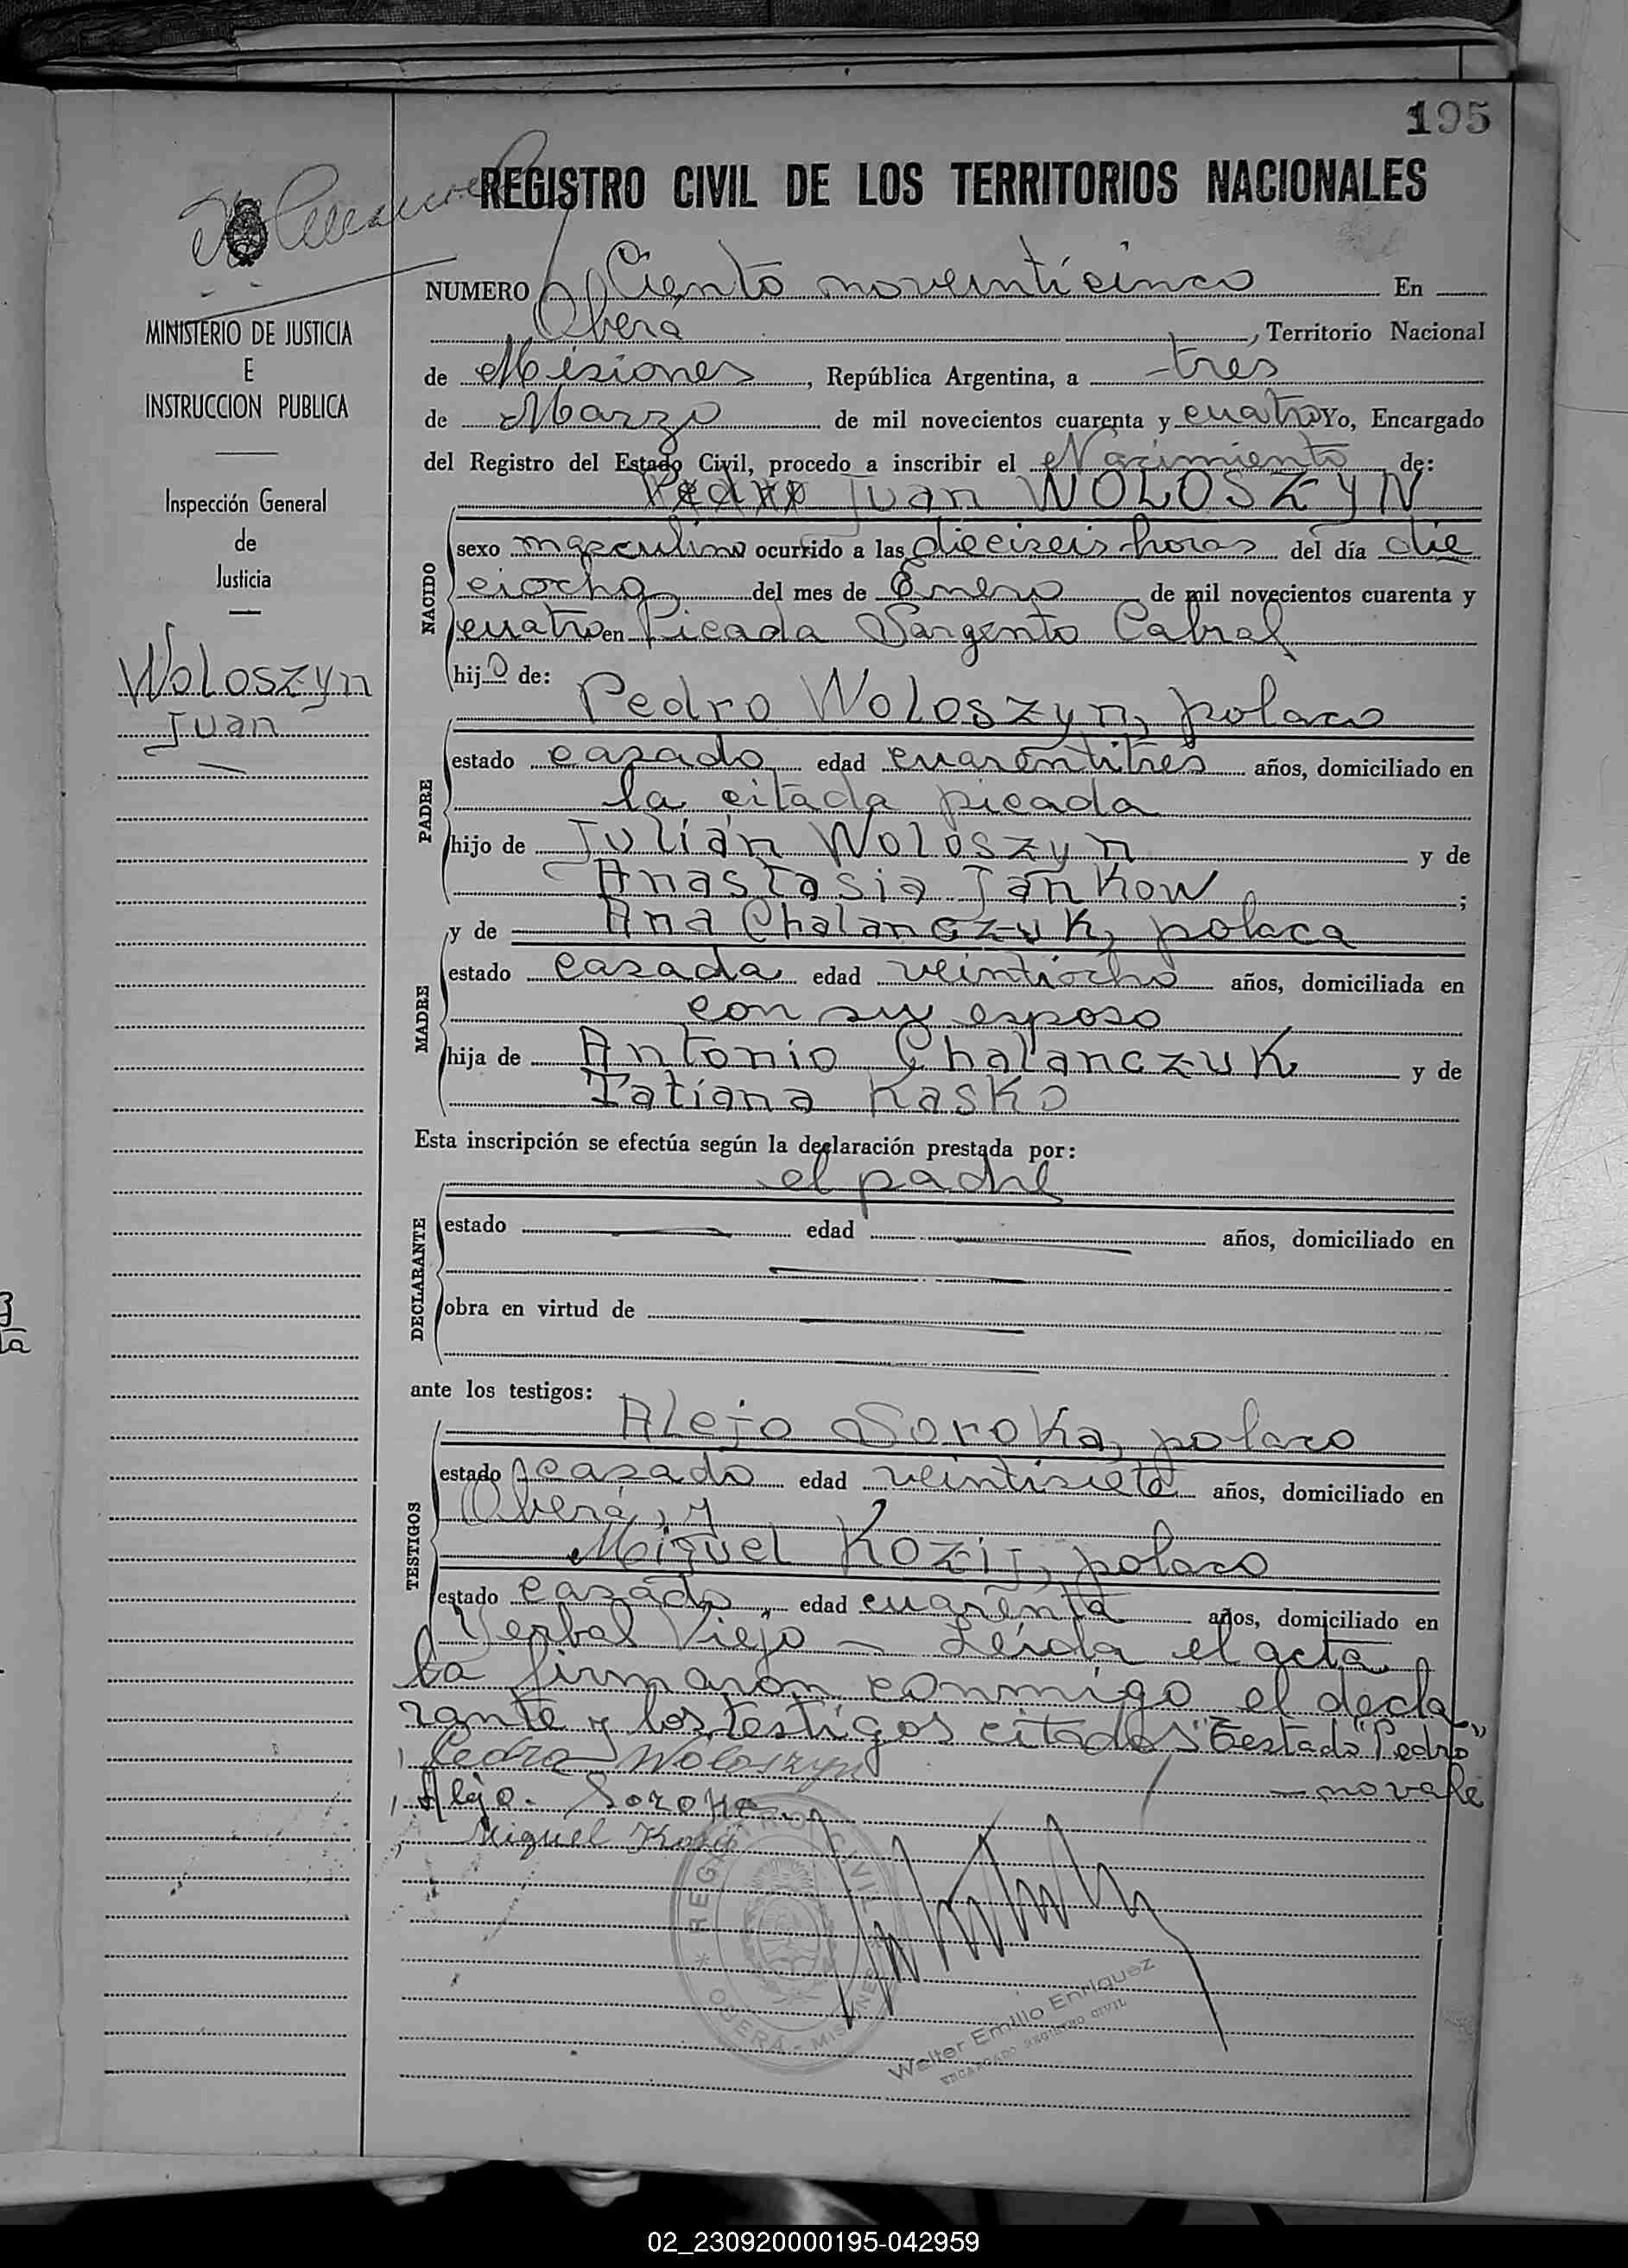 195
REGISTRO CIVIL DE LOS TERRITORIOS NACIONALES
NUMERO Ciento noventicinco En
Oberá, Territorio Nacional
de Misiones, República Argentina, a tres
de Marzo de mil novecientos cuarenta y cuatro Yo, Encargado
del Registro del Estado Civil, procedo a inscribir el Nacimiento de:
Pedro Juan WOLOSZYN
NACIDO
sexo masculino ocurrido a las dieciseis horas del día die
ciocho del mes de Enero de mil novecientos cuarenta y
cuatro en Picada Sargento Cabral
hijo de:
Pedro Woloszyn, polaco
PADRE
estado casado edad cuarentitres años, domiciliado en
la citada picada
hijo de Julián Woloszyn y de
Anastasia Jankow;
y de Ana Chalanczuk, polaca
MADRE
estado casada edad veintiocho años, domiciliada en
con su esposo
hija de Antonio Chalanczuk y de
Tatiana Kasko
Esta inscripción se efectúa según la declaración prestada por:
el padre
DECLARANTE
estado edad años, domiciliado en
obra en virtud de
ante los testigos:
Alejo Soroka, polaco
TESTIGOS
estado casado edad veintisiete años, domiciliado en
Oberá, y
Miguel Kozij, polaco
estado casado, edad cuarenta años, domiciliado en
Yerbal Viejo - Leída el acta
la firmaron conmigo el decla
rante y los testigos citados "Testado "Pedro"
- no vale
Pedro Woloszyn
Alejo. Soroka
Miguel Kozij
REGISTRO CIVIL * OBERÁ - MISIONES *
Walter Emilio Enriquez
ENCARGADO REGISTRO CIVIL
MINISTERIO DE JUSTICIA
E
INSTRUCCION PUBLICA
Inspección General
de
Justicia
Woloszyn
Juan
02_230920000195-042959